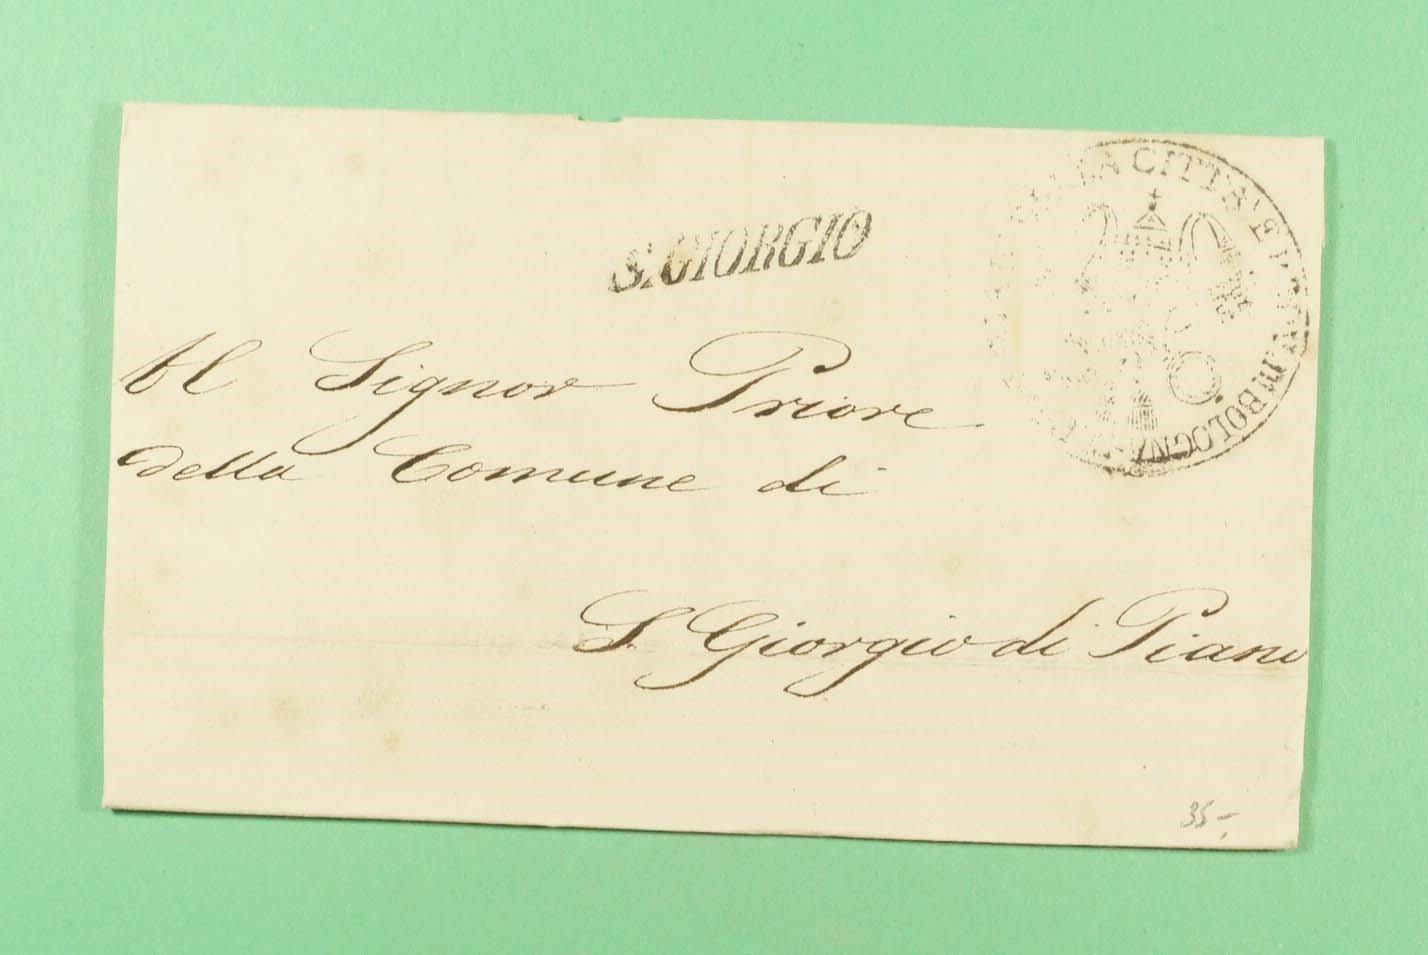 S. GIORGIO
LA CITTA' E P DI BOLOGNA
Al Signor Priore
della Comune di
S. Giorgio di Piano
35-